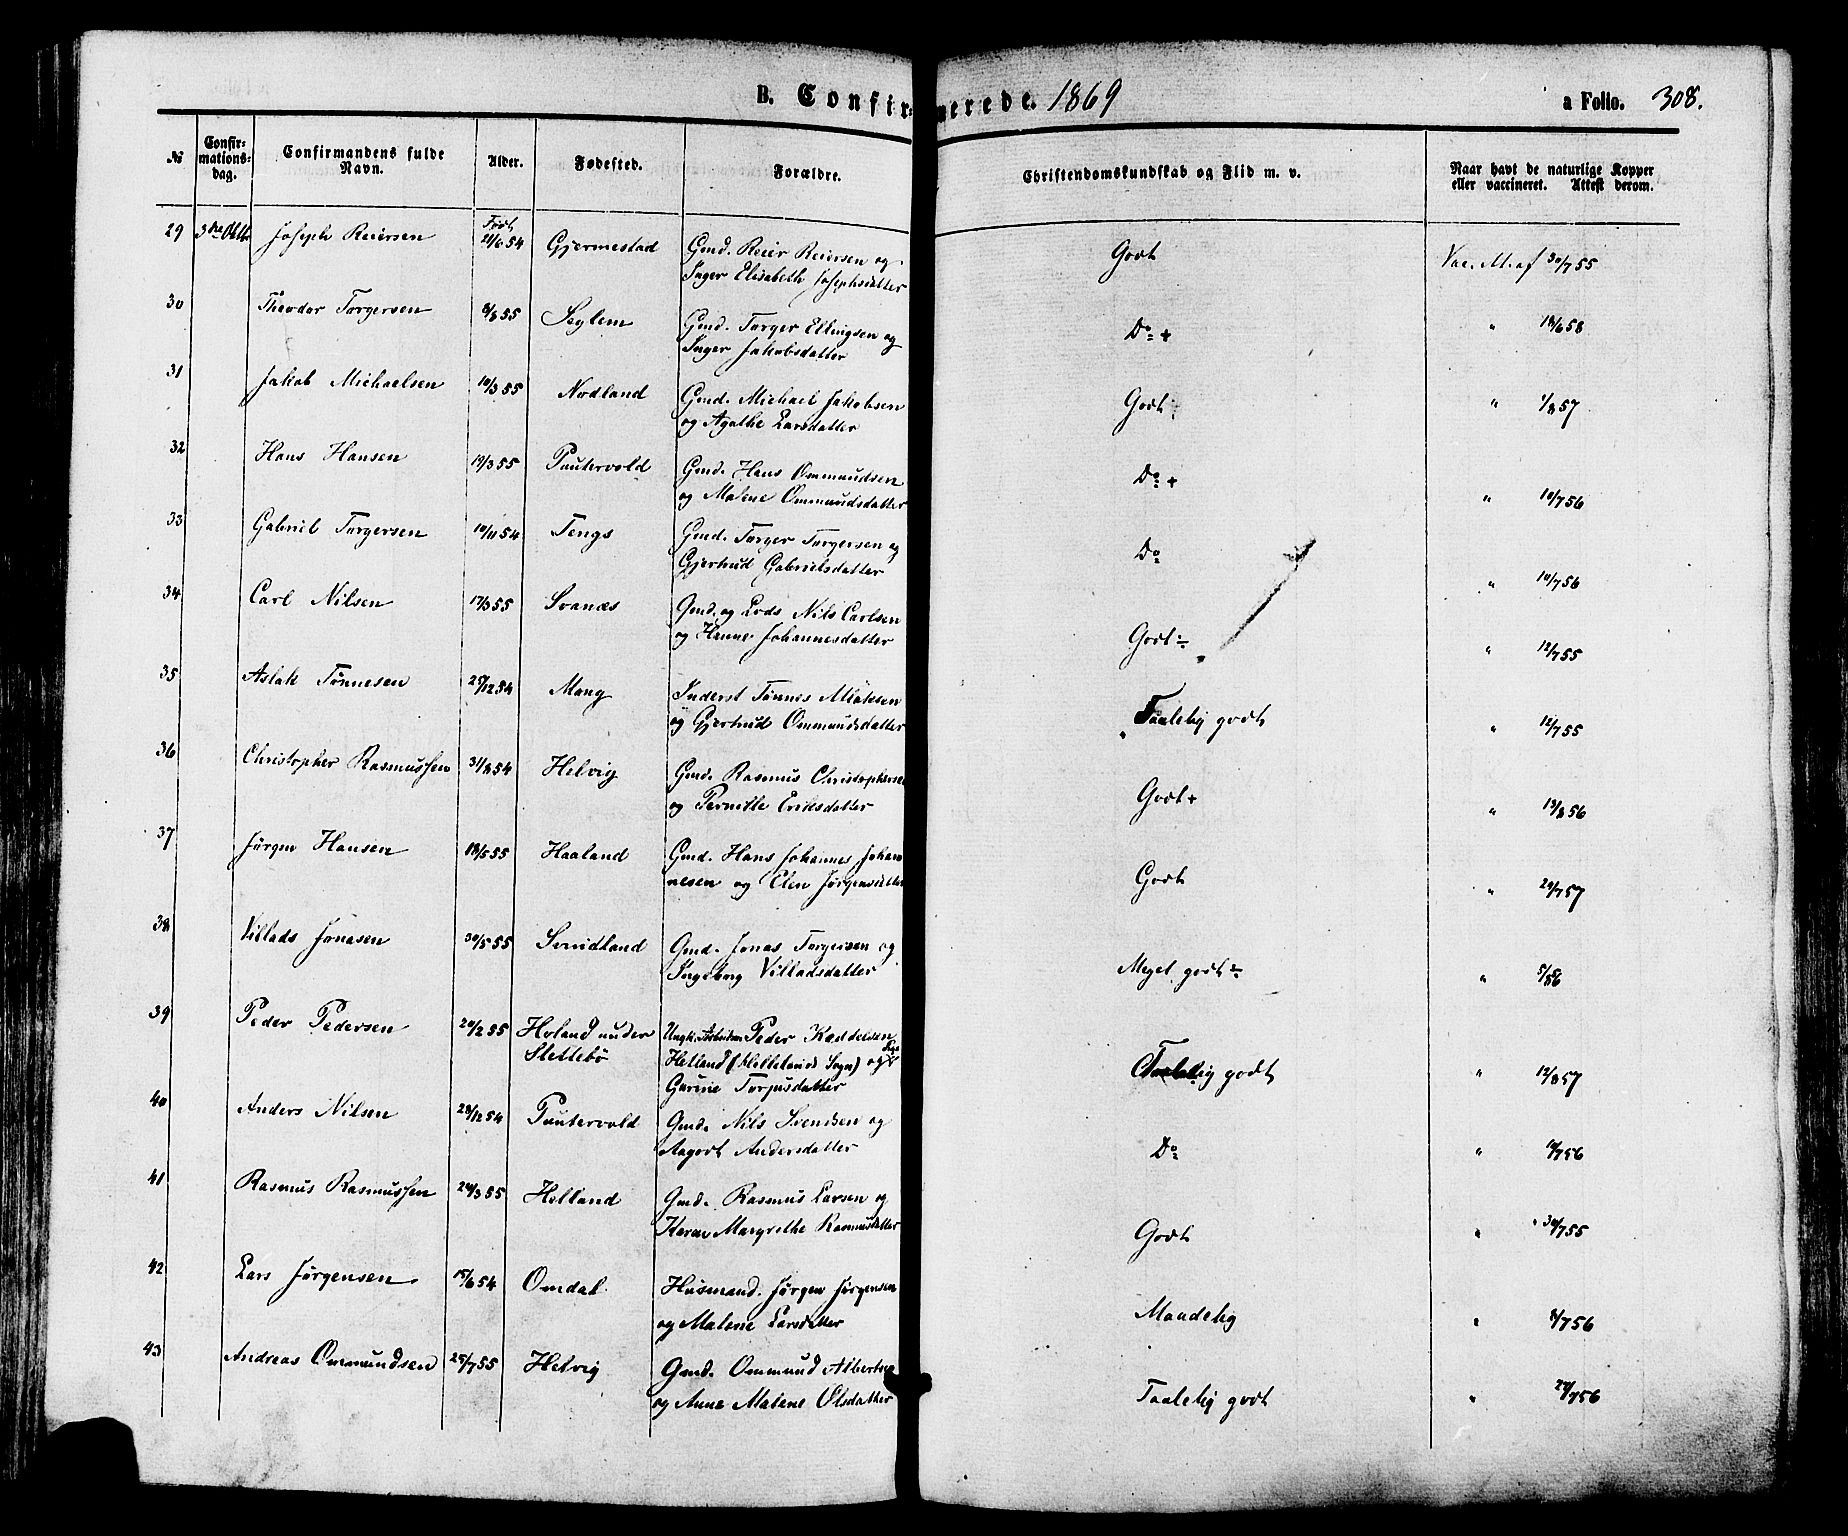 B. Confirmerede. 1869
a Folio. 308.
№ Confirmationsdag. Confirmandens fulde Navn. Alder. Fødested. Forældre. Christendomskundskab og Flid m. v. Naar havt de naturlige Kopper eller vaccineret. Attest derom.
29 3die Oktbr Joseph Reiersen Født 21/6 54 Gjermestad Gmd. Reier Reiersen og Godt Vac. M. af 30/7 55
Inger Elisabeth Josephsdatter
30 Theodor Torgersen 8/8 55 Seglem Gmd. Torger Ellingsen og Do + " 18/6 58
Inger Jakobsdatter
31 Jakob Michaelsen 10/3 55 Nodland Gmd. Michael Jakobsen Godt " 1/8 57
og Agathe Larsdatter
32 Hans Hansen 19/3 55 Puntervold Gmd. Hans Ommundsen Do + " 10/7 56
og Malene Ommundsdatter
33 Gabriel Torgersen 10/11 54 Tengs Gmd. Torger Torgersen og Do " 10/7 56
Gjertrud Gabrielsdatter
34 Carl Nilsen 17/3 55 Svanæs Gmd. og Lods Nils Carlsen Godt ÷ " 12/7 55
og Hanne Johannesdatter
35 Aslak Tønnesen 27/12 54 Mong Inderst Tønnes Aslaksen Taalelig godt " 12/7 55
og Gjertrud Ommundsdatter
36 Christopher Rasmussen 31/8 54 Helvig Gmd. Rasmus Christophersen Godt + " 19/8 56
og Pernille Eriksdatter
37 Jørgen Hansen 18/5 55 Haaland Gmd. Hans Johannes Johan Godt " 20/7 57
nesen og Elen Jørgensdatter
38 Villads Jonasen 30/5 55 Svindland Gmd. Jonas Torgersen og Meget godt ÷ " 5/8 56
Ingeborg Villadsdatter
39 Peder Pedersen 20/2 55 Hovland under Ungk. Arbeidsm. Peder
Slettebø Helland (Hellelands Sogn) og Pige Taalelig godt " 12/8 57
Gurine Torjusdatter
40 Anders Nilsen 28/12 54 Puntervold Gmd. Nils Svendsen og Do " 10/7 56
Aagodt Andersdatter
41 Rasmus Rasmussen 24/3 55 Helland Gmd. Rasmus Larsen og Godt " 30/7 55
Karen Margrethe Rasmusdatter
42 Lars Jørgensen 15/6 54 Omdal Husmand. Jørgen Jørgensen Maadelig " 8/7 56
og Malene Larsdatter
43 Andreas Ommundsen 25/7 55 Helvig Gmd. Ommund Albertsen Taalelig godt " 24/7 56
og Anne Malene Olsdatter